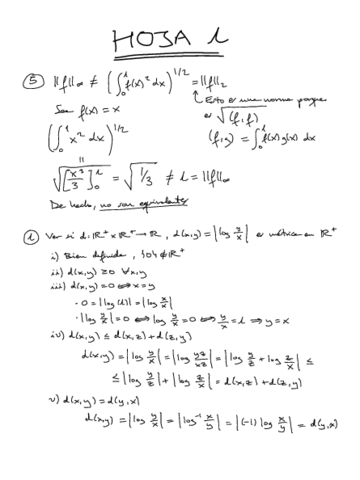 HOJA 1
⑤ ||f||∞ ≠ (∫₀¹ f(x)² dx)^{1/2} = ||f||₂
Esto es una norma porque
Sea f(x) = x
es √(f,f)
(∫₀¹ x² dx)^{1/2}
(f,g) = ∫₀¹ f(x)g(x) dx
||
√([x³/3]₀¹) = √(1/3) ≠ 1 = ||f||∞
De hecho, no son equivalentes
① Ver si d: ℝ⁺ × ℝ⁺ → ℝ, d(x,y) = |log y/x| es métrica en ℝ⁺
i) Bien definida, {0} ∉ ℝ⁺
ii) d(x,y) ≥ 0 ∀x,y
iii) d(x,y) = 0 ⇔ x = y
· 0 = |log(1)| = |log x/x|
· |log y/x| = 0 ⇔ log y/x = 0 ⇔ y/x = 1 ⇒ y = x
iv) d(x,y) ≤ d(x,z) + d(z,y)
d(x,y) = |log y/x| = |log yz/xz| = |log y/z + log z/x| ≤
≤ |log y/z| + |log z/x| = d(x,z) + d(z,y)
v) d(x,y) = d(y,x)
d(x,y) = |log y/x| = |log⁻¹ x/y| = |(-1) log x/y| = d(y,x)